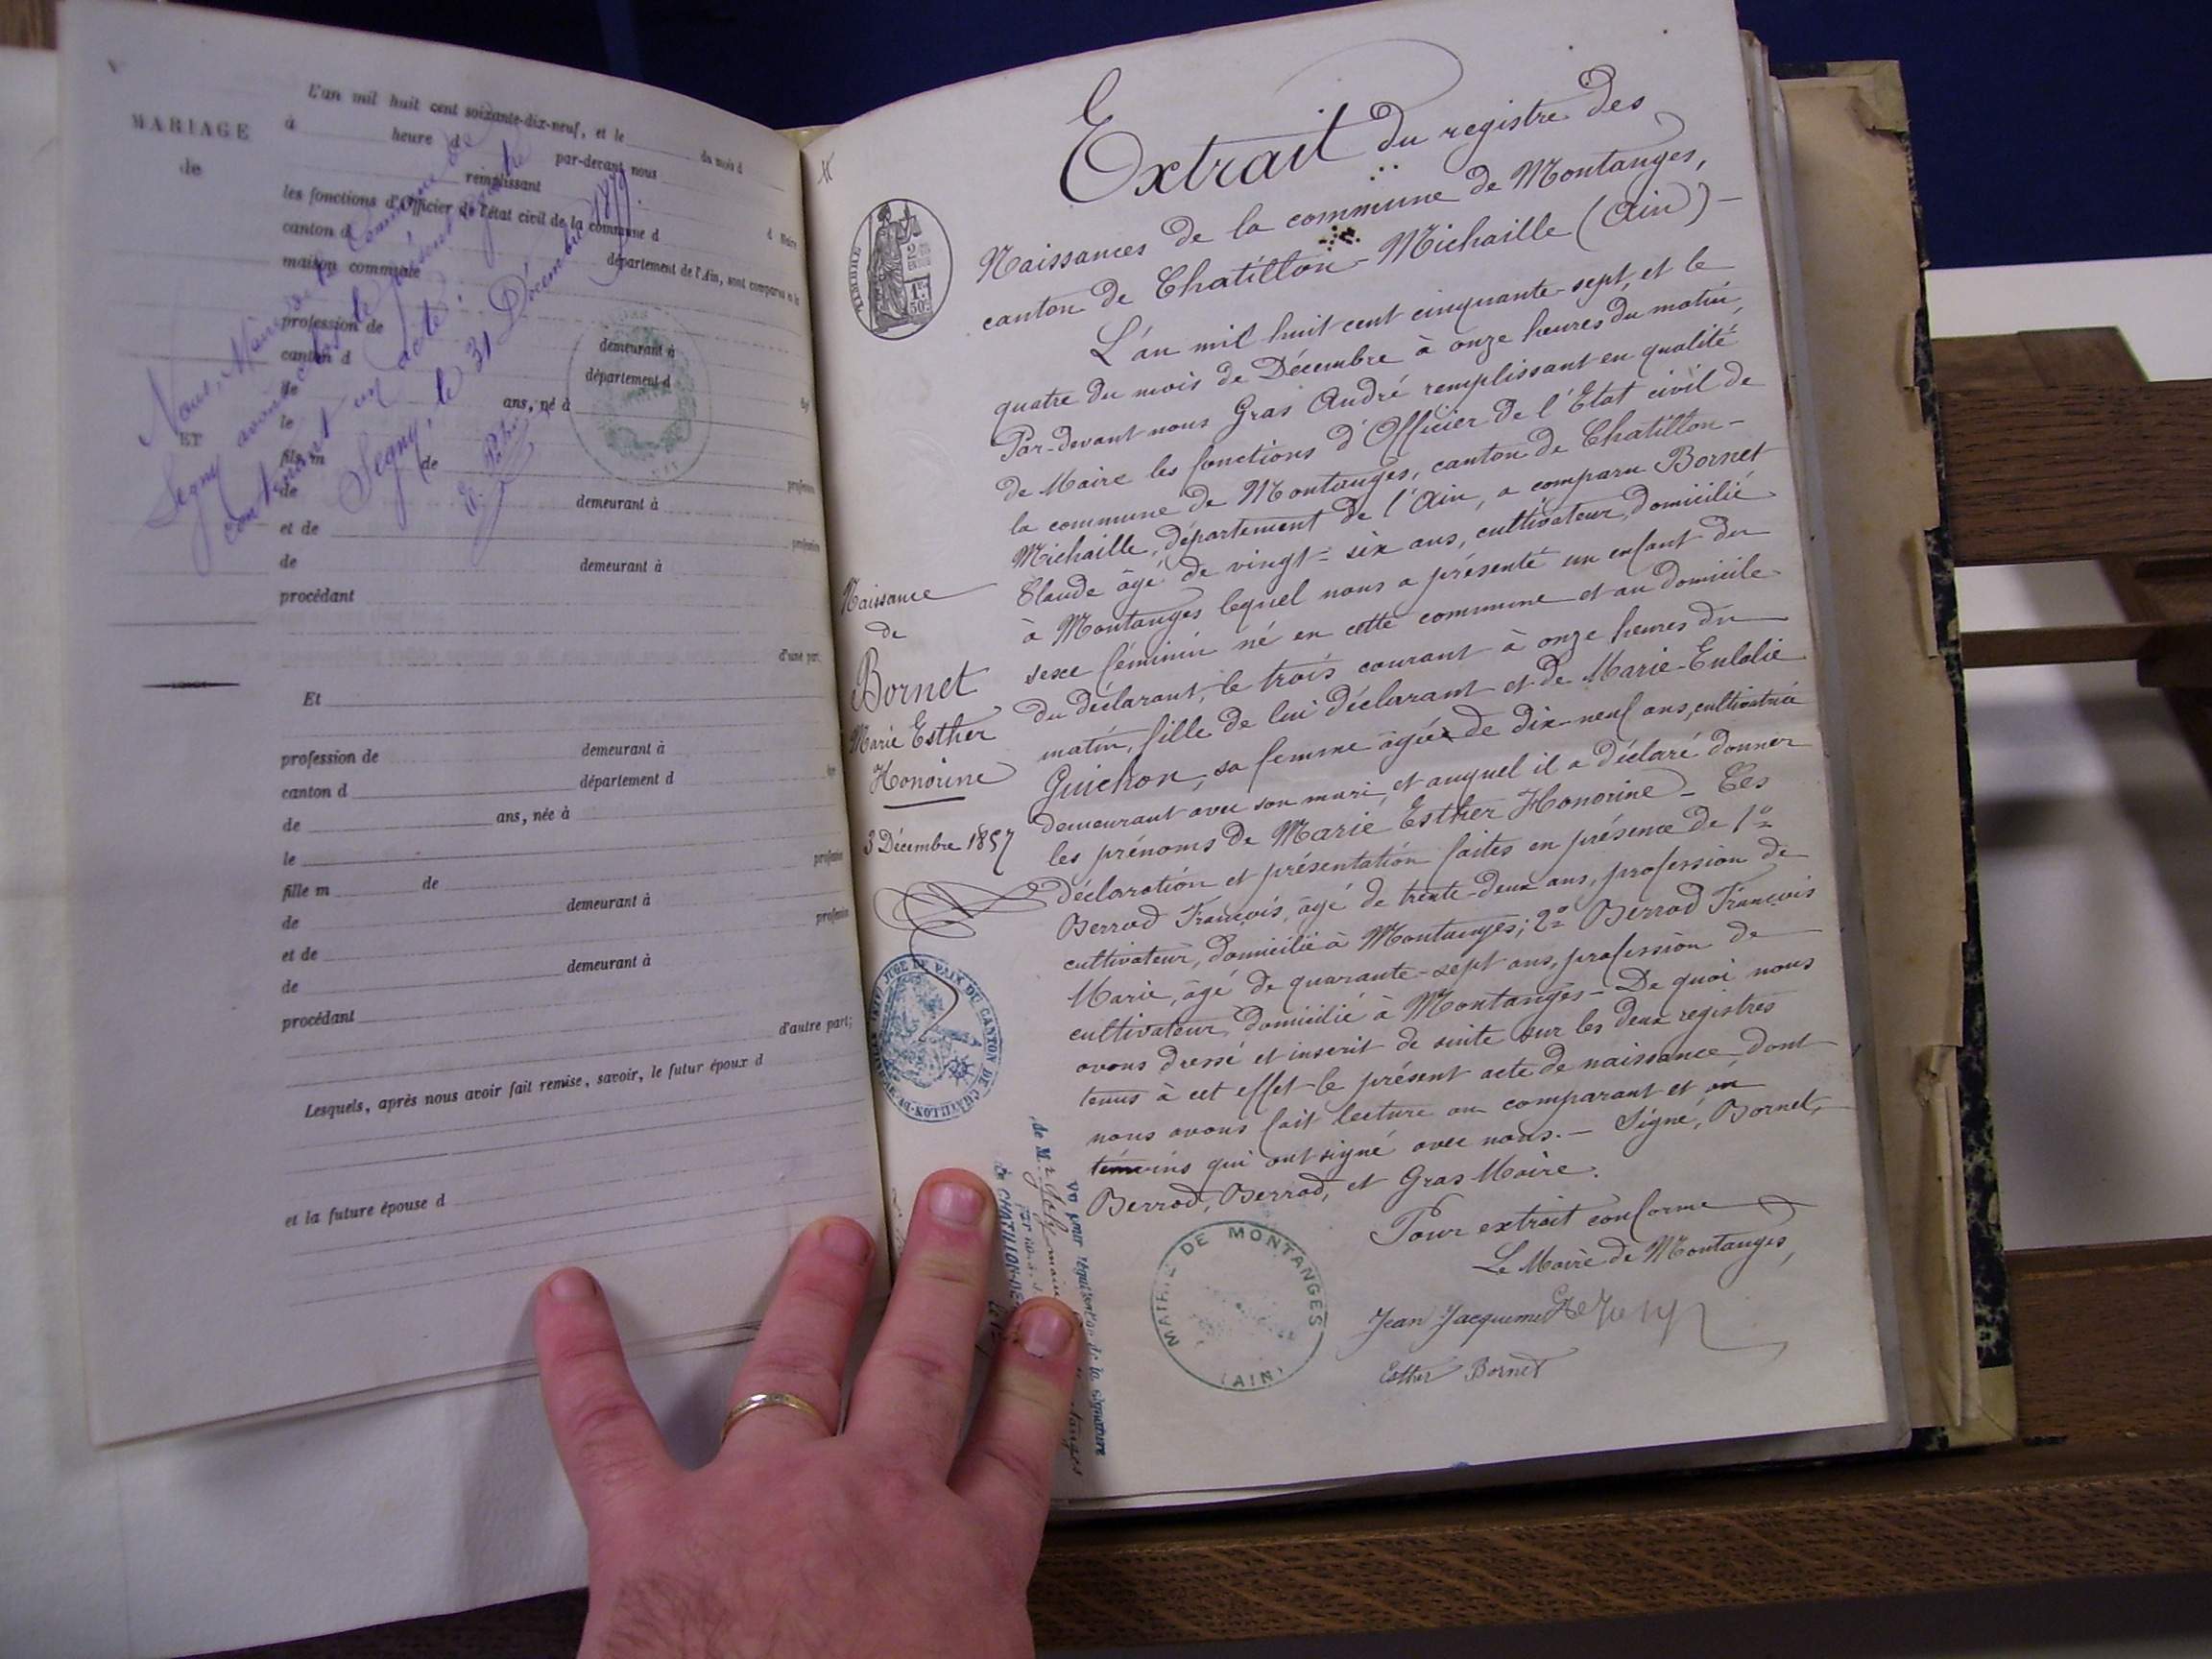 MARIAGE
de
ET
L'an mil huit cent soixante-dix-neuf, et le du mois d
à heure d par-devant nous
remplissant d Maire
les fonctions d'Officier de l'état civil de la commune d
canton d département de l'Ain, sont comparus en la
maison commune
profession de demeurant à
canton d département d
de ans, né à
le
fils m de profession
de demeurant à
et de profession
de demeurant à
procédant
d'une part;
Et
profession de demeurant à
canton d département d
de ans, née à
le
fille m de profession
de demeurant à
et de profession
de demeurant à
procédant
d'autre part;
Lesquels, après nous avoir fait remise, savoir, le futur époux d
et la future épouse d
Nous, Maire de la Commune de
Segny avons clos le présent registre
contenant un acte.
Segny, le 31 Décembre 1879.
TIMBRE
Extrait du registre des
Naissances de la commune de Montanges,
canton de Chatillon-Michaille (Ain)
L'an mil huit cent cinquante-sept, et le
quatre du mois de Décembre à onze heures du matin,
Par-devant nous Gras André remplissant en qualité
de Maire les fonctions d'Officier de l'Etat civil de
la commune de Montanges, canton de Chatillon-
Michaille, département de l'Ain, a comparu Bornet
Claude âgé de vingt-six ans, cultivateur, domicilié
à Montanges lequel nous a présenté un enfant du
sexe féminin né en cette commune et au domicile
du déclarant, le trois courant à onze heures du
matin, fille de lui déclarant et de Marie-Eulalie
Guichon, sa femme âgée de dix-neuf ans, cultivatrice
demeurant avec son mari, et auquel il a déclaré donner
les prénoms de Marie Esther Honorine - Ces
Déclaration et présentation faites en présence de 1º
Berrod François, âgé de trente-deux ans, profession de
cultivateur, domicilié à Montanges; 2º Berrod François
Marie, âgé de quarante-sept ans, profession de
cultivateur domicilié à Montanges - De quoi nous
avons dressé et inscrit de suite sur les deux registres
tenus à cet effet le présent acte de naissance dont
nous avons fait lecture au comparant et au
témoins qui ont signé avec nous. - Signé, Bornet,
Berrod, Berrod, et Gras Maire.
Pour extrait conforme
Le Maire de Montanges,
Jean Jacquemet
Esther Bornet
Naissance
de
Bornet
Marie Esther
Honorine
3 Décembre 1857
JUGE DE PAIX DU CANTON DE CHATILLON-DE-M
Vu pour légalisation de la signature
de M
maire
de CHATILLON-DE
MAIRIE DE MONTANGES
(AIN)